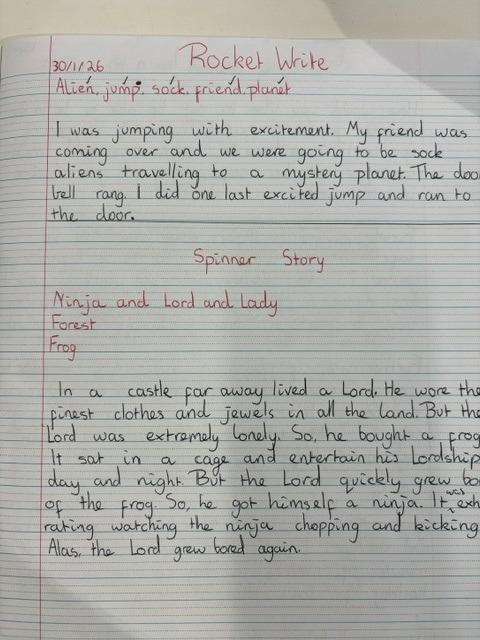 30/1/26 Rocket Write
Alien, jump, sock, friend, planet
I was jumping with excitement. My friend was
coming over and we were going to be sock
aliens travelling to a mystery planet. The doo
bell rang. I did one last excited jump and ran to
the door.
Spinner Story
Ninja and Lord and Lady
Forest
Frog
In a castle far away lived a Lord. He wore the
finest clothes and jewels in all the land. But the
Lord was extremely lonely. So, he bought a frog
It sat in a cage and entertain his Lordship
day and night. But the Lord quickly grew bo
of the frog. So, he got himself a ninja. It was exh
rating watching the ninja chopping and kicking
Alas, the Lord grew bored again.